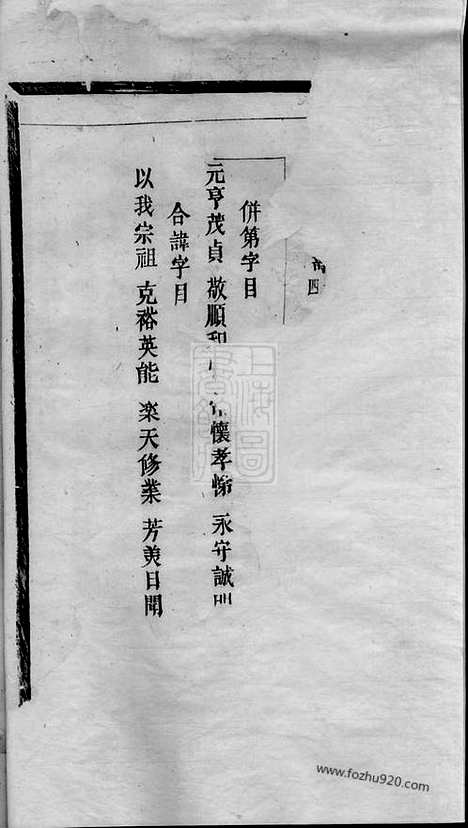 四
併第字目
元亨茂貞 敬順和 懷孝悌 永守誠
合諱字目
以我宗祖 克裕英能 楽天修業 芳美日聞
www.fozhu920.com